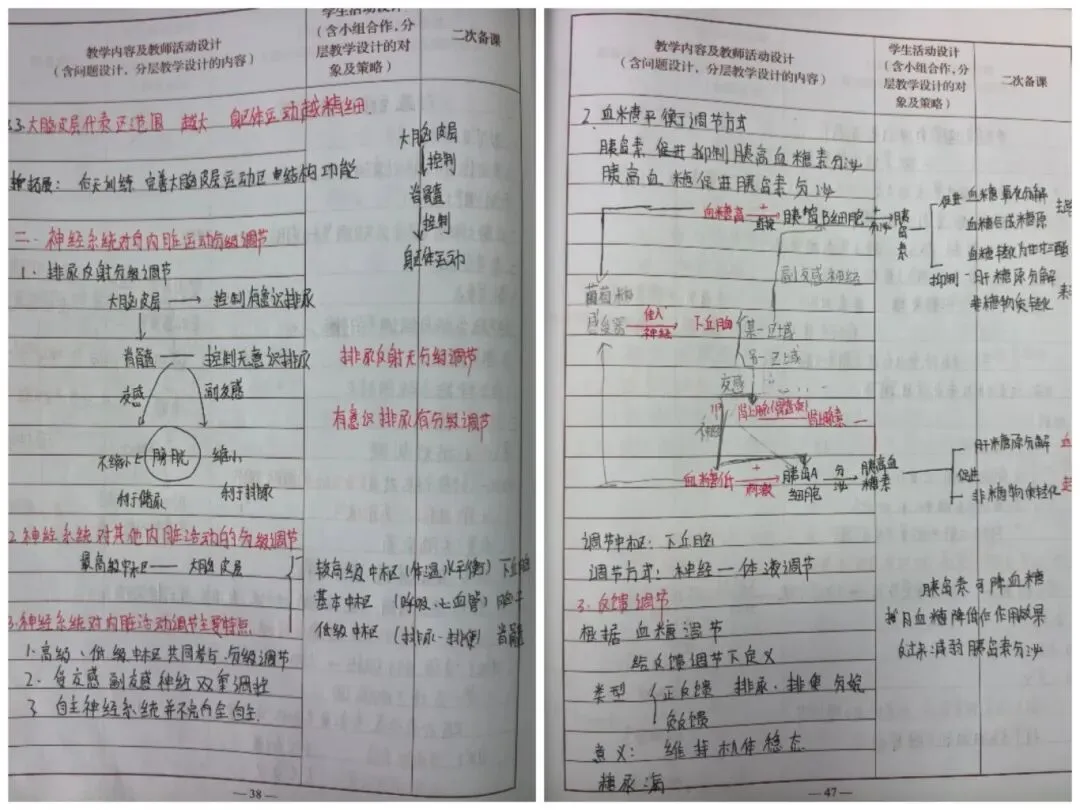 教学内容及教师活动设计
(含问题设计、分层教学设计的内容)
学生活动设计
(含小组合作,分
层教学设计的对
象及策略)
二次备课
3.大脑皮层代表区范围 越大 躯体运动越精细.
拓展: 训练 完善大脑皮层运动区 结构功能
大脑皮层
控制
脊髓
控制
躯体运动
二、神经系统对内脏运动分级调节
1、排尿反射分级调节
大脑皮层 → 控制有意识排尿
脊髓 控制无意识排尿
交感 副交感
不缩小 膀胱 缩小
利于储尿 利于排尿
排尿反射无分级调节
有意识排尿有分级调节
2.神经系统对其他内脏运动的分级调节
最高级中枢 —— 大脑皮层
较高级中枢(体温水平衡)下丘脑
基本中枢 (呼吸、心血管) 脑干
低级中枢 (排尿、排便) 脊髓
3.神经系统对内脏活动调节主要特点
1.高级、低级中枢共同参与,分级调节
2、受交感 副交感神经双重调控
3、自主神经系统并不完全自主
—38—
教学内容及教师活动设计
(含问题设计、分层教学设计的内容)
学生活动设计
(含小组合作,分
层教学设计的对
象及策略)
二次备课
2、血糖平衡调节方式
胰岛素 促进抑制胰高血糖素分泌
胰高血糖促进胰岛素分泌
血糖高 + 胰岛B细胞 + 胰岛素
促进 血糖氧化分解
血糖合成糖原
血糖转化为甘油三酯
抑制 肝糖原分解
非糖物质转化
副交感神经
葡萄糖
感受器
传入
神经
下丘脑
某一区域
另一区域
交感
神经
肾上腺(髓质) 肾上腺素
血糖低 + 刺激 胰岛A
细胞 分泌 胰高血
糖素
促进
肝糖原分解
非糖物质转化
调节中枢: 下丘脑
调节方式: 神经—体液调节
3、反馈调节
根据 血糖调节
给反馈调节下定义
类型 正反馈 排尿、排便 分娩
负反馈
意义: 维持机体稳态
糖尿病
胰岛素可降血糖
血糖降低 作用效果
反过来减弱胰岛素分泌
—47—